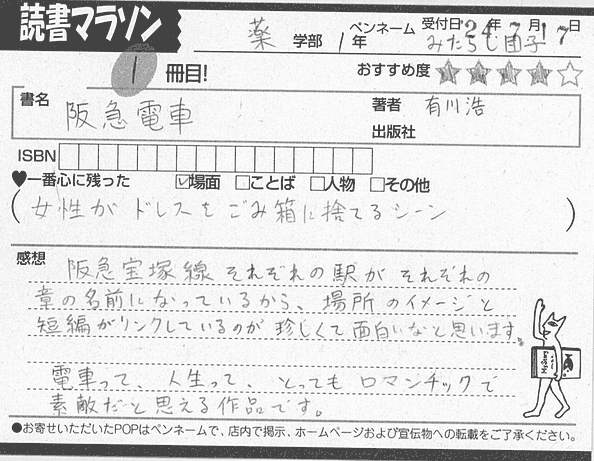 読書マラソン
薬 学部 1年 ペンネーム みたらし団子 受付日'24年7月17日
1 冊目!
おすすめ度 ★★★★☆
書名 阪急電車
著者 有川浩
出版社
ISBN
♥一番心に残った ☑場面 □ことば □人物 □その他
(女性が ドレスを ごみ箱に捨てるシーン)
感想
阪急宝塚線 それぞれの駅が それぞれの
章の名前になっているから、場所のイメージと
短編がリンクしているのが珍しくて面白いなと思います。
電車って、人生って、とっても ロマンチックで
素敵だと思える作品です。
●お寄せいただいたPOPはペンネームで、店内で掲示、ホームページおよび宣伝物への転載をご了承ください。